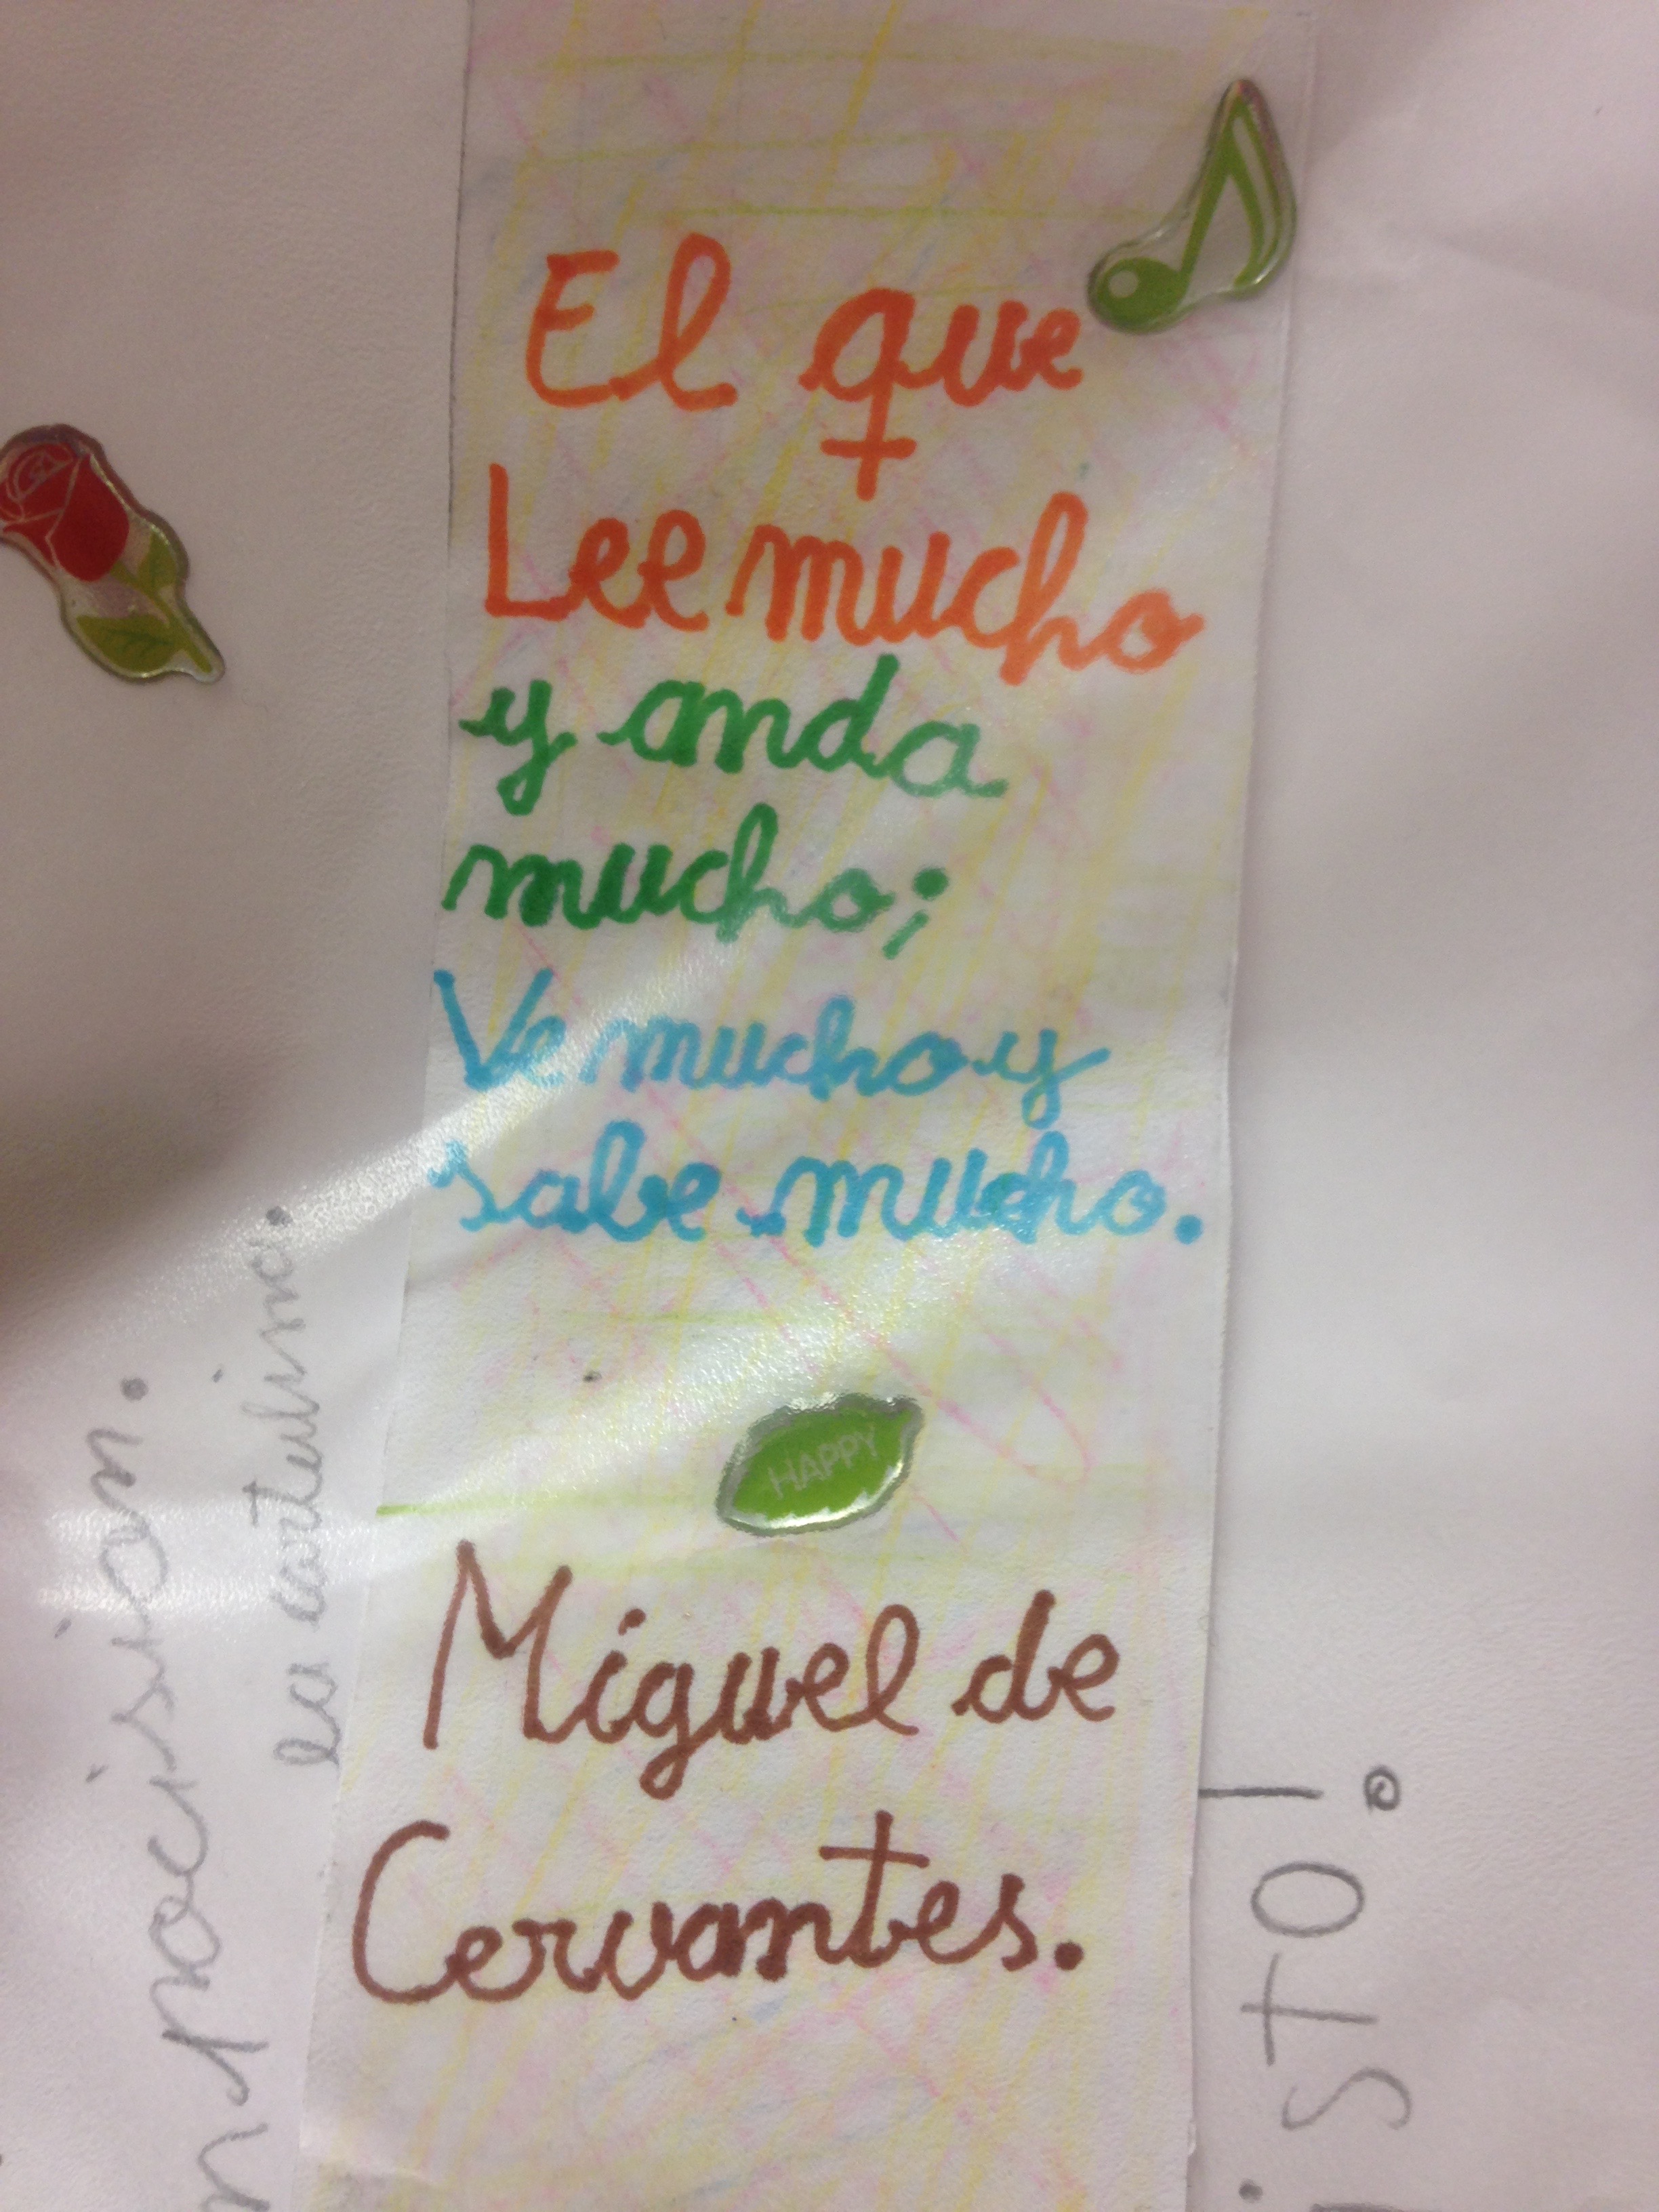 El que
Lee mucho
y anda
mucho;
Ve mucho y
sabe mucho.
HAPPY
Miguel de
Cervantes.
la cartulina.